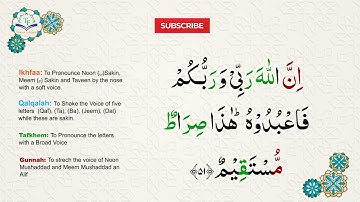 SUBSCRIBE
Ikhfaa: To Pronounce Noon (ن)Sakin,
Meem (م) Sakin and Taveen by the nose
with a soft voice.
Qalqalah: To Shake the Voice of five
letters (Qaf), (Ta), (Ba), (Jeem), (Dal)
while these are sakin.
Tafkhem: To Pronounce the letters
with a Broad Voice
Gunnah: To strech the voice of Noon
Mushaddad and Meem Mushaddad an
Alif
اِنَّ اللّٰهَ رَبِّيْ وَرَبُّكُمْ
فَاعْبُدُوْهُ هٰذَا صِرَاطٌ
مُّسْتَقِيْمٌ ﴿٥١﴾